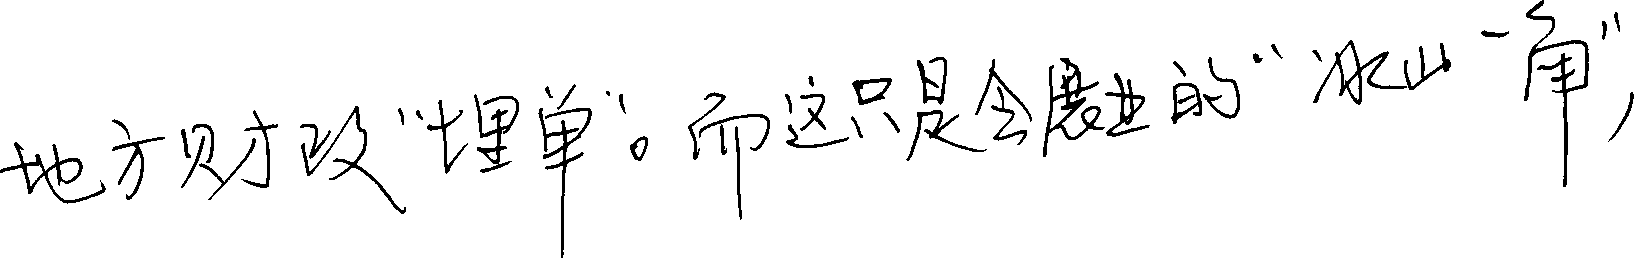 地方财政“埋单”。而这只是会展业的“冰山一角”，